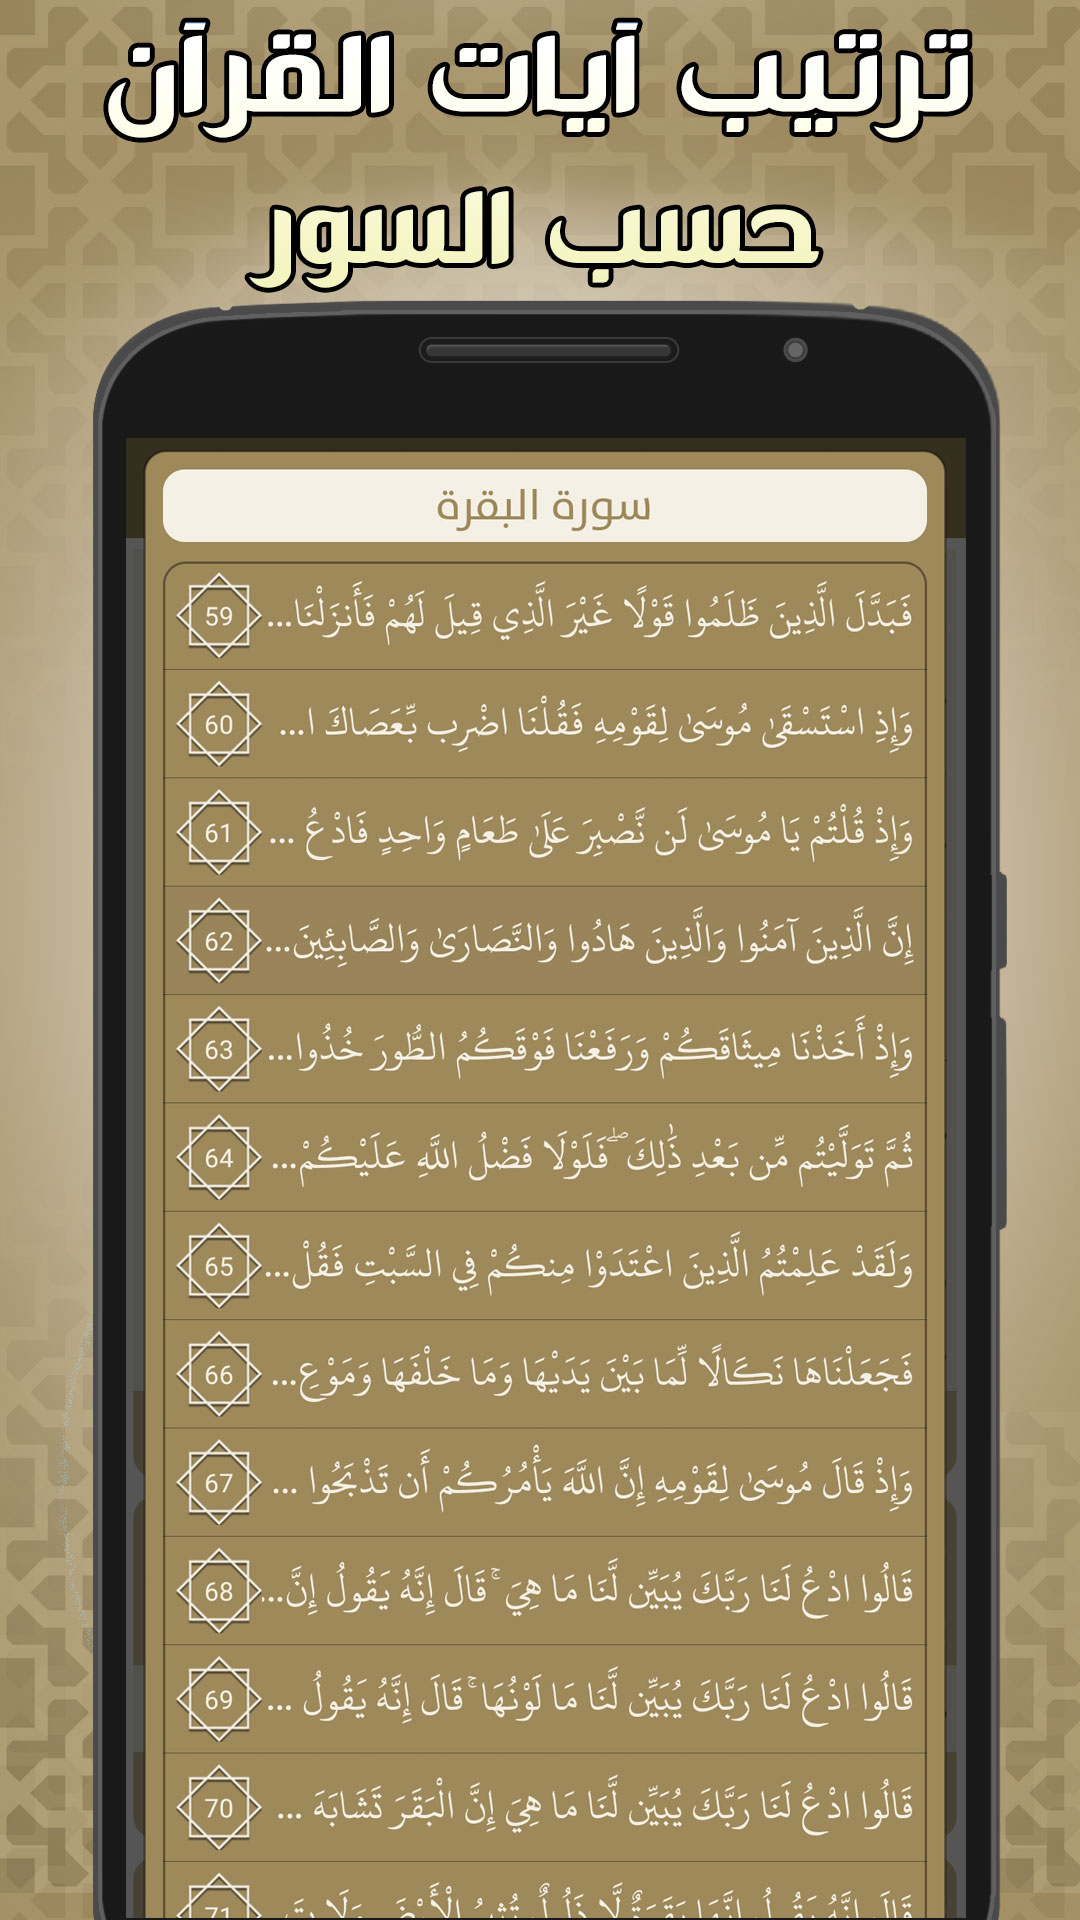 ترتيب آيات القرآن
حسب السور
سورة البقرة
فَبَدَّلَ الَّذِينَ ظَلَمُوا قَوْلًا غَيْرَ الَّذِي قِيلَ لَهُمْ فَأَنزَلْنَا... 59
وَإِذِ اسْتَسْقَىٰ مُوسَىٰ لِقَوْمِهِ فَقُلْنَا اضْرِب بِّعَصَاكَ ا... 60
وَإِذْ قُلْتُمْ يَا مُوسَىٰ لَن نَّصْبِرَ عَلَىٰ طَعَامٍ وَاحِدٍ فَادْعُ ... 61
إِنَّ الَّذِينَ آمَنُوا وَالَّذِينَ هَادُوا وَالنَّصَارَىٰ وَالصَّابِئِينَ... 62
وَإِذْ أَخَذْنَا مِيثَاقَكُمْ وَرَفَعْنَا فَوْقَكُمُ الطُّورَ خُذُوا... 63
ثُمَّ تَوَلَّيْتُم مِّن بَعْدِ ذَٰلِكَ ۖ فَلَوْلَا فَضْلُ اللَّهِ عَلَيْكُمْ... 64
وَلَقَدْ عَلِمْتُمُ الَّذِينَ اعْتَدَوْا مِنكُمْ فِي السَّبْتِ فَقُلْ... 65
فَجَعَلْنَاهَا نَكَالًا لِّمَا بَيْنَ يَدَيْهَا وَمَا خَلْفَهَا وَمَوْعِ... 66
وَإِذْ قَالَ مُوسَىٰ لِقَوْمِهِ إِنَّ اللَّهَ يَأْمُرُكُمْ أَن تَذْبَحُوا ... 67
قَالُوا ادْعُ لَنَا رَبَّكَ يُبَيِّن لَّنَا مَا هِيَ ۚ قَالَ إِنَّهُ يَقُولُ إِنَّ... 68
قَالُوا ادْعُ لَنَا رَبَّكَ يُبَيِّن لَّنَا مَا لَوْنُهَا ۚ قَالَ إِنَّهُ يَقُولُ ... 69
قَالُوا ادْعُ لَنَا رَبَّكَ يُبَيِّن لَّنَا مَا هِيَ إِنَّ الْبَقَرَ تَشَابَهَ ... 70
قَالَ إِنَّهُ يَقُولُ إِنَّهَا بَقَرَةٌ لَّا ذَلُولٌ تُثِيرُ الْأَرْضَ وَلَا 71